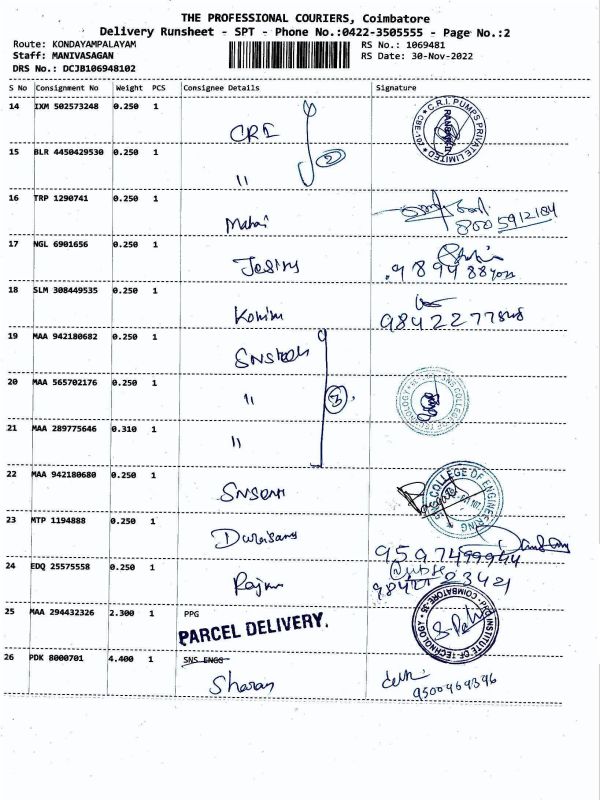 THE PROFESSIONAL COURIERS, Coimbatore
Delivery Runsheet - SPT - Phone No.:0422-3505555 - Page No.:2
Route: KONDAYAMPALAYAM RS No.: 1069481
Staff: MANIVASAGAN RS Date: 30-Nov-2022
DRS No.: DCJB106948102
S No Consignment No Weight PCS Consignee Details Signature
14 IXM 502573248 0.250 1 CRI C.R.I. PUMPS PRIVATE LIMITED
15 BLR 4450429530 0.250 1 " 2
16 TRP 1290741 0.250 1
17 NGL 6901656 0.250 1
18 SLM 308449535 0.250 1
19 MAA 942180682 0.250 1
20 MAA 565702176 0.250 1 " 3
21 MAA 289775646 0.310 1 "
22 MAA 942180680 0.250 1 COLLEGE OF ENGINEERING
23 MTP 1194888 0.250 1
24 EDQ 25575558 0.250 1
25 MAA 294432326 2.300 1 PPG INSTITUTE OF TECHNOLOGY COIMBATORE-35
PARCEL DELIVERY.
26 PDK 8000701 4.400 1 SNS ENGG
Sharan
9500469396